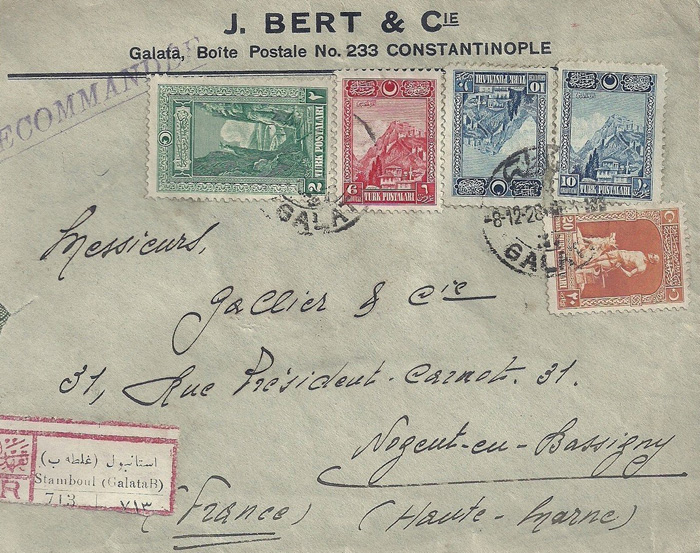 J. BERT & CIE
Galata, Boîte Postale No. 233 CONSTANTINOPLE
RECOMMANDÉE
2 TÜRK POSTALARI ٢
6 TÜRK POSTALARI ٦
10 TÜRK POSTALARI
10 TÜRK POSTALARI ١٠
20
GALATA
-8-12-28
GALATA
Messieurs,
Gallier & Cie
31, Rue Président-Carnot. 31.
Nogent-en-Bassigny
(France) (Haute-Marne)
استانبول (غلطه ب)
R Stamboul (Galata B)
713 ٧١٣